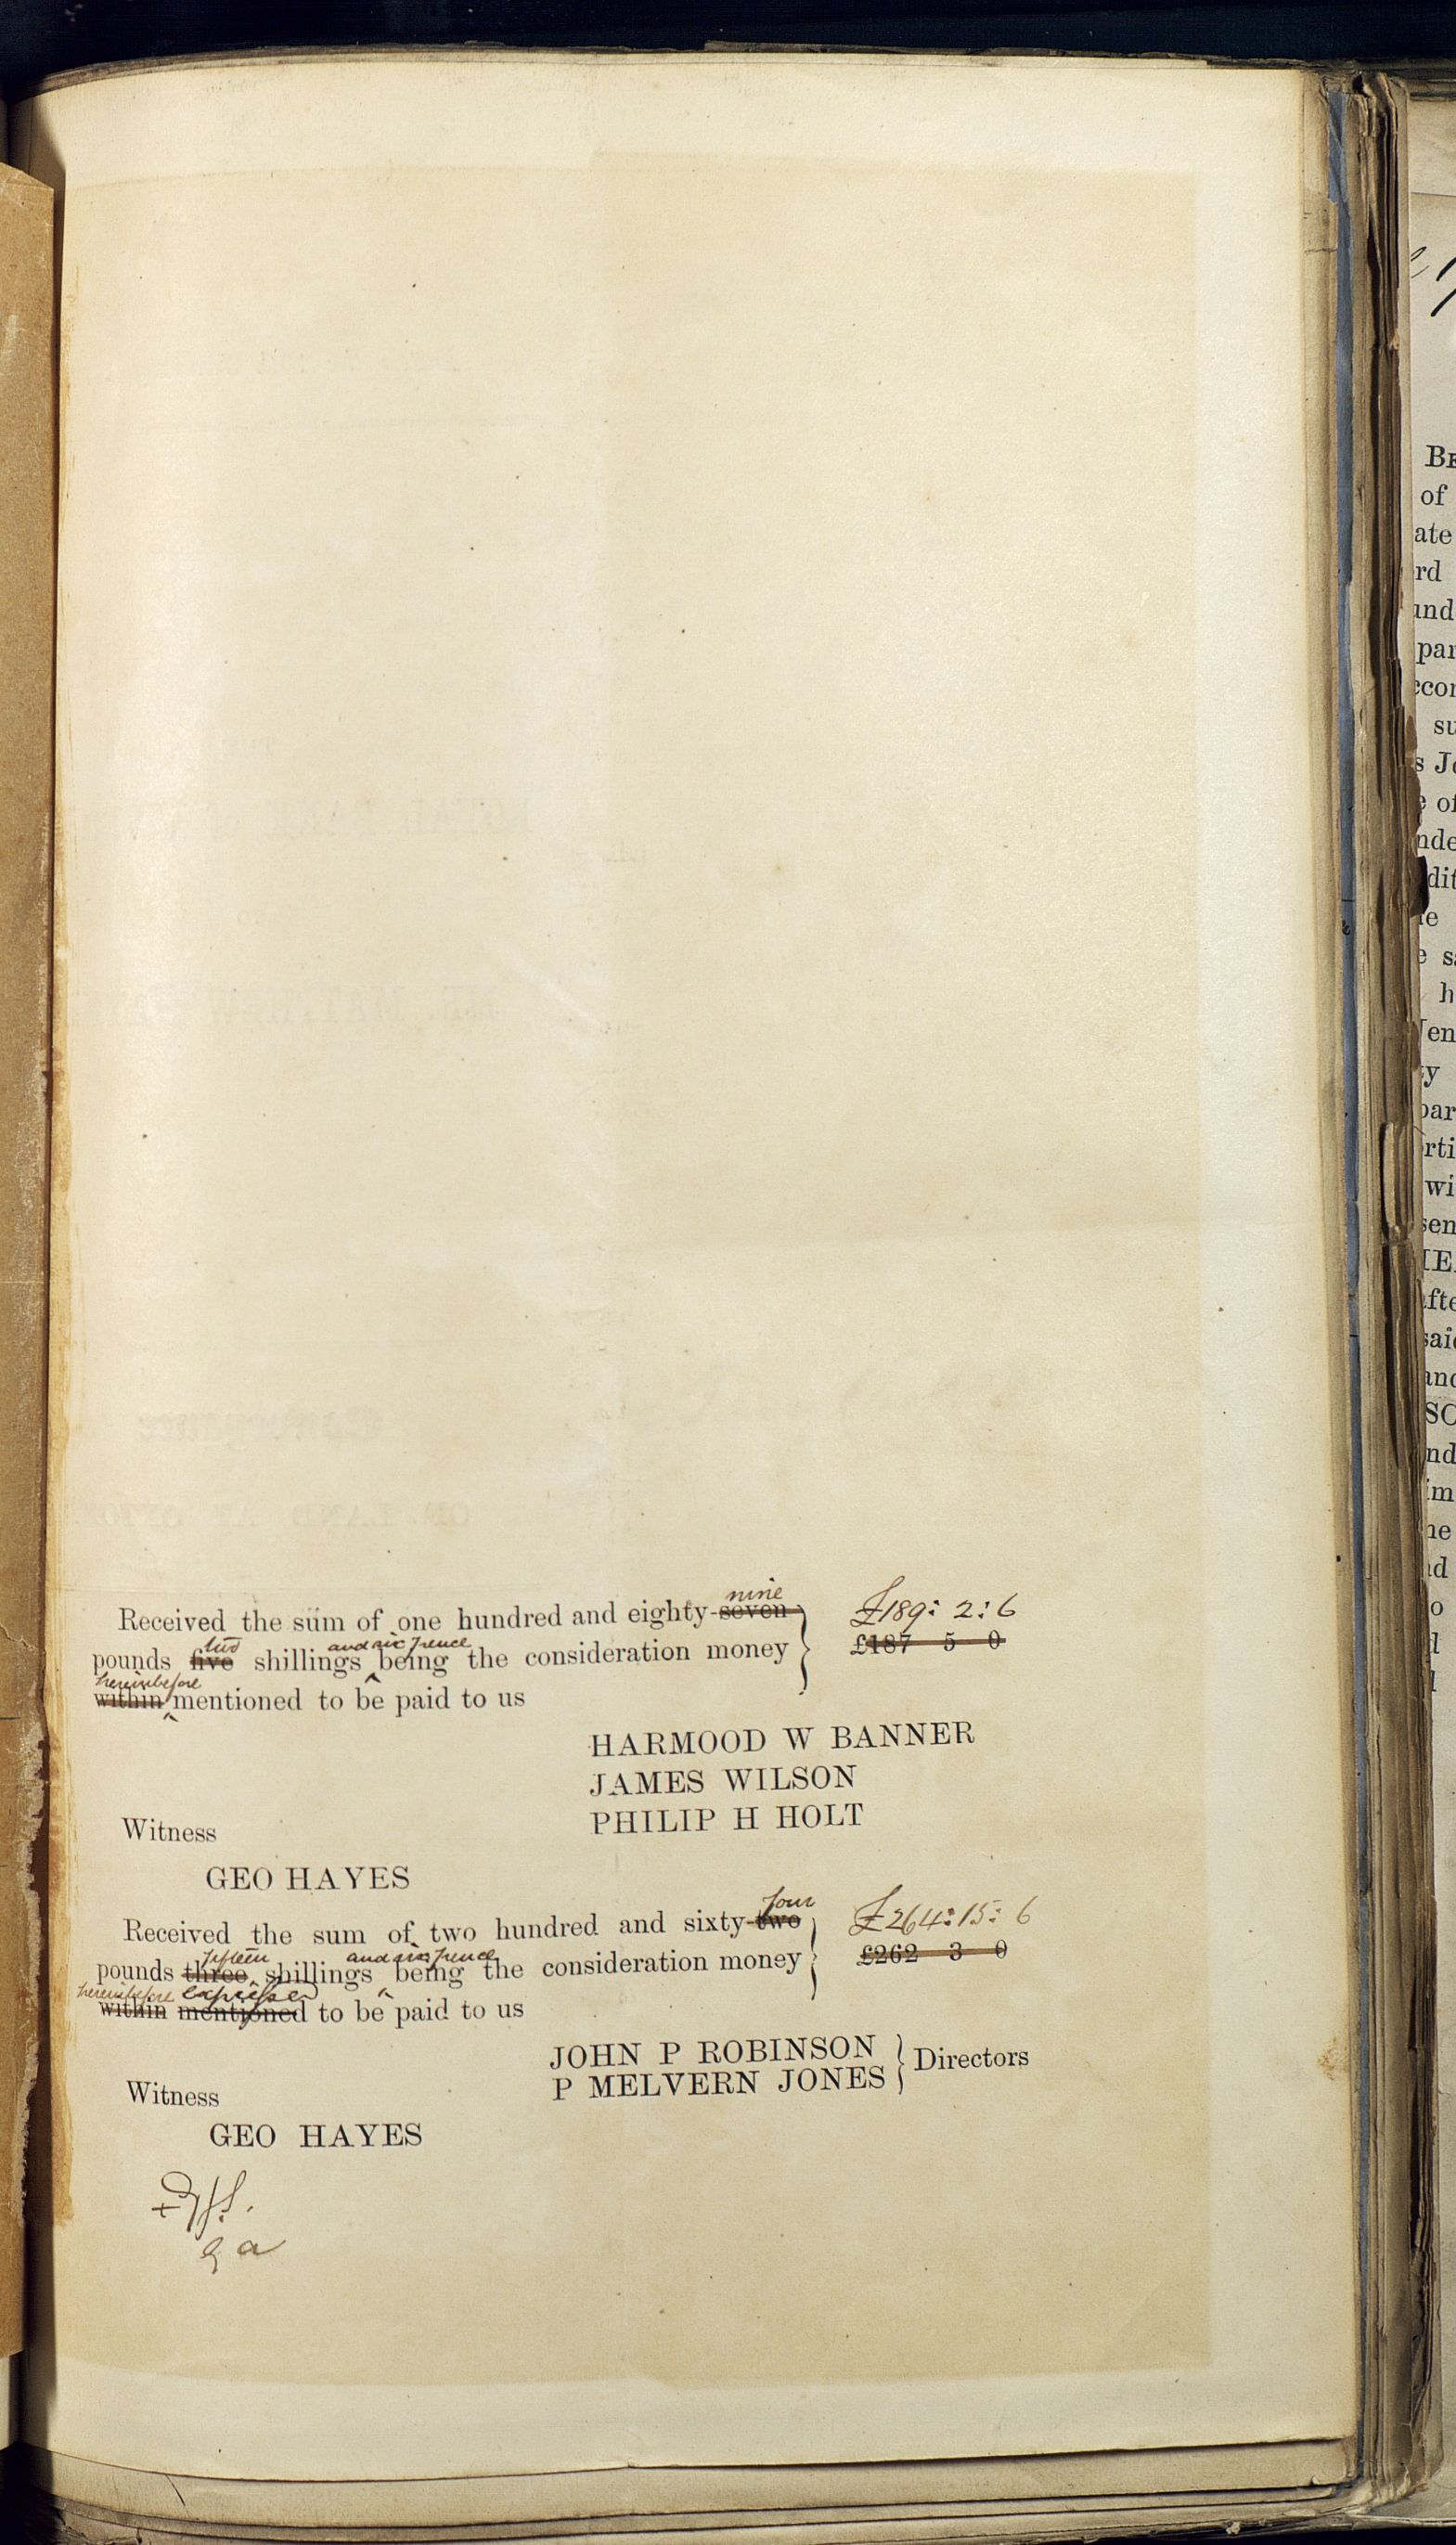 Received the sum of one hundred and eighty-seven nine £189: 2: 6
pounds five two shillings and six pence being the consideration money £187 5 0
within hereinbefore mentioned to be paid to us
HARMOOD W BANNER
JAMES WILSON
PHILIP H HOLT
Witness
GEO HAYES
Received the sum of two hundred and sixty-two four £264: 15: 6
pounds three fifteen shillings and six pence being the consideration money £262 3 0
within mentioned hereinbefore expressed to be paid to us
JOHN P ROBINSON
P MELVERN JONES } Directors
Witness
GEO HAYES